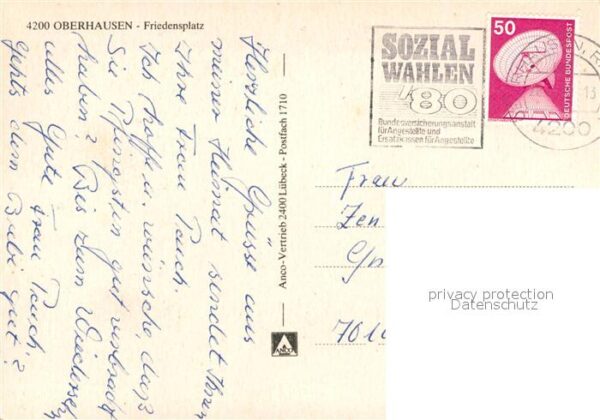 4200 OBERHAUSEN - Friedensplatz
Herzliche Grüsse aus
meiner Heimat sendet Ihnen
Ihre Frau Pauch.
Ich hoffe u. wünsche, dass
Sie Pfingsten gut verbracht
haben? Bis zum Wiederseh'n
alles Gute Frau Pauch.
Gehts dem Bubi gut?
Anco-Vertrieb 2400 Lübeck - Postfach 1710
ANCO
SOZIAL
WAHLEN
'80
Bundesversicherungsanstalt
für Angestellte und
Ersatzkassen für Angestellte
50
DEUTSCHE BUNDESPOST
4200
13
Frau
Zen
701
privacy protection
Datenschutz